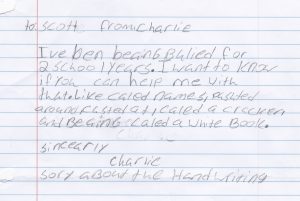 to scott fromcharlie
I've ben beanb Bulied for
2 school years. I want to know
if you can help me with
that. Like caled names, pushed
around, cused at, caled a cracken
and Beainb caled a white Book.
sincearly
charlie
sory about the Handwriting